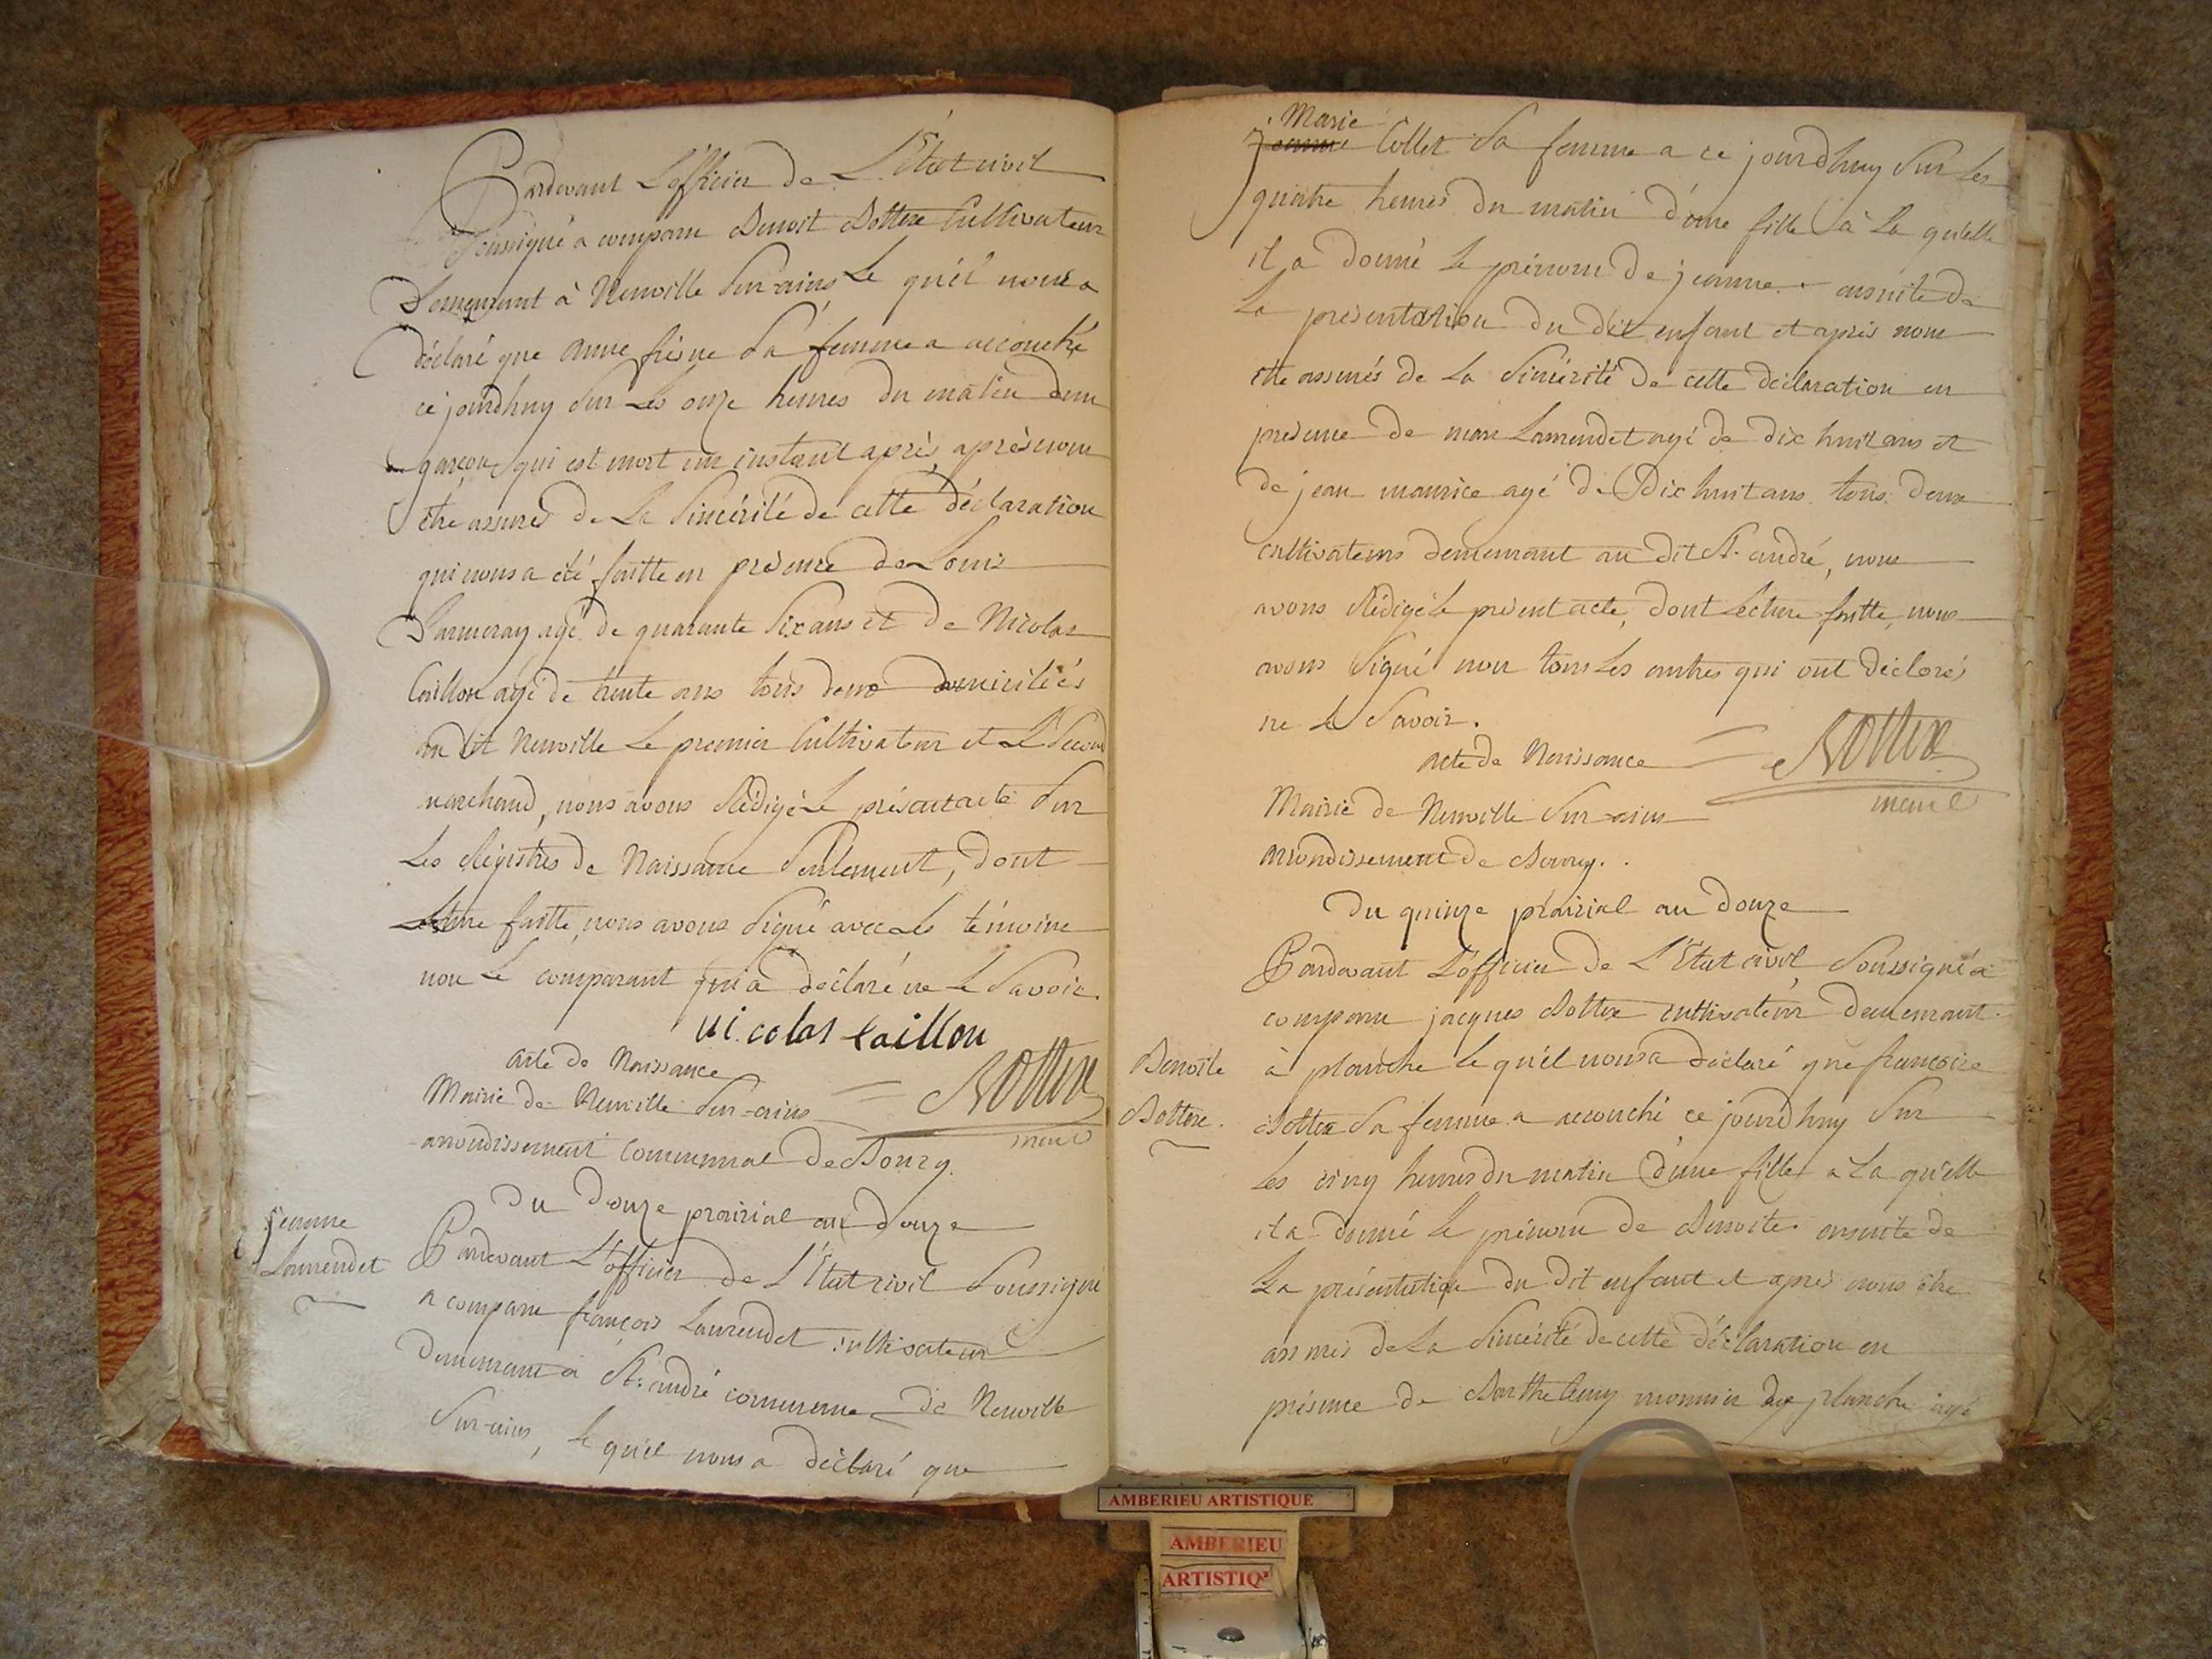 Pardevant L'officier de L'Etat civil
Soussigné a comparu Benoit Bottex Cultivateur
Demeurant à Neuville Sur-ains Le quel nous a
déclaré que anne frésne Sa femme a accouché
ce jourdhuy Sur Les onze heures du matin d'un
garçon qui est mort un instant après, après nous
être assurés de La Sincérité de cette déclaration
qui nous a été faitte en présence de Louis
agé de quarante Six ans et de Nicolas
Caillon agé de trente ans tous deux domiciliés
au dit Neuville Le premier Cultivateur et Le Second
marchand, nous avons Rédigé Le présent acte Sur
Les Régistres de Naissance Seulement, dont
Lecture faitte, nous avons Signé avec Les témoins
non Le comparant qui a déclaré ne Le Savoir.
nicolas caillon
acte de Naissance
Mairie de Neuville Sur-ains
Bottex
maire
arrondissement Communal de Bourg.
Du Douze prairial an douze
Jeanne
Laurendet
Pardevant L'officier de L'Etat civil Soussigné
a comparu françois Laurendet cultivateur
Demeurant à St. andré commune de Neuville
Sur-ains, Le quel nous a déclaré que
Marie
jeanne Collet Sa femme a ce jourdhuy Sur Les
quatre heures du matin d'une fille à La quelle
il a donné Le prénom de jeanne. ensuite de
La présentation du dit enfant et après nous
être assurés de La Sincérité de cette déclaration en
présence de Laurendet agé de dix huit ans et
de jean maurice agé de Dix huit ans tous deux
cultivateurs demeurant au dit St. andré, nous
avons Rédigé Le présent acte, dont Lecture faitte, nous
avons Signé non tous Les autres qui ont déclarés
ne Le Savoir.
acte de Naissance
Bottex
maire
Mairie de Neuville Sur-ains
arrondissement de Bourg.
Du quinze prairial an douze
Pardevant L'officier de L'Etat civil Soussigné a
comparu jacques Bottex cultivateur demeurant
Benoite
Bottex.
à planche Le quel nous a déclaré que françoise
Bottex Sa femme a accouché ce jourdhuy Sur
Les cinq heures du matin d'une fille à La quelle
il a donné Le prénom de Benoite. ensuite de
La présentation du dit enfant et après nous être
assurés de La Sincérité de cette déclaration en
présence de Barthelemy monnier de planche agé
AMBERIEU ARTISTIQUE
AMBERIEU
ARTISTIQ